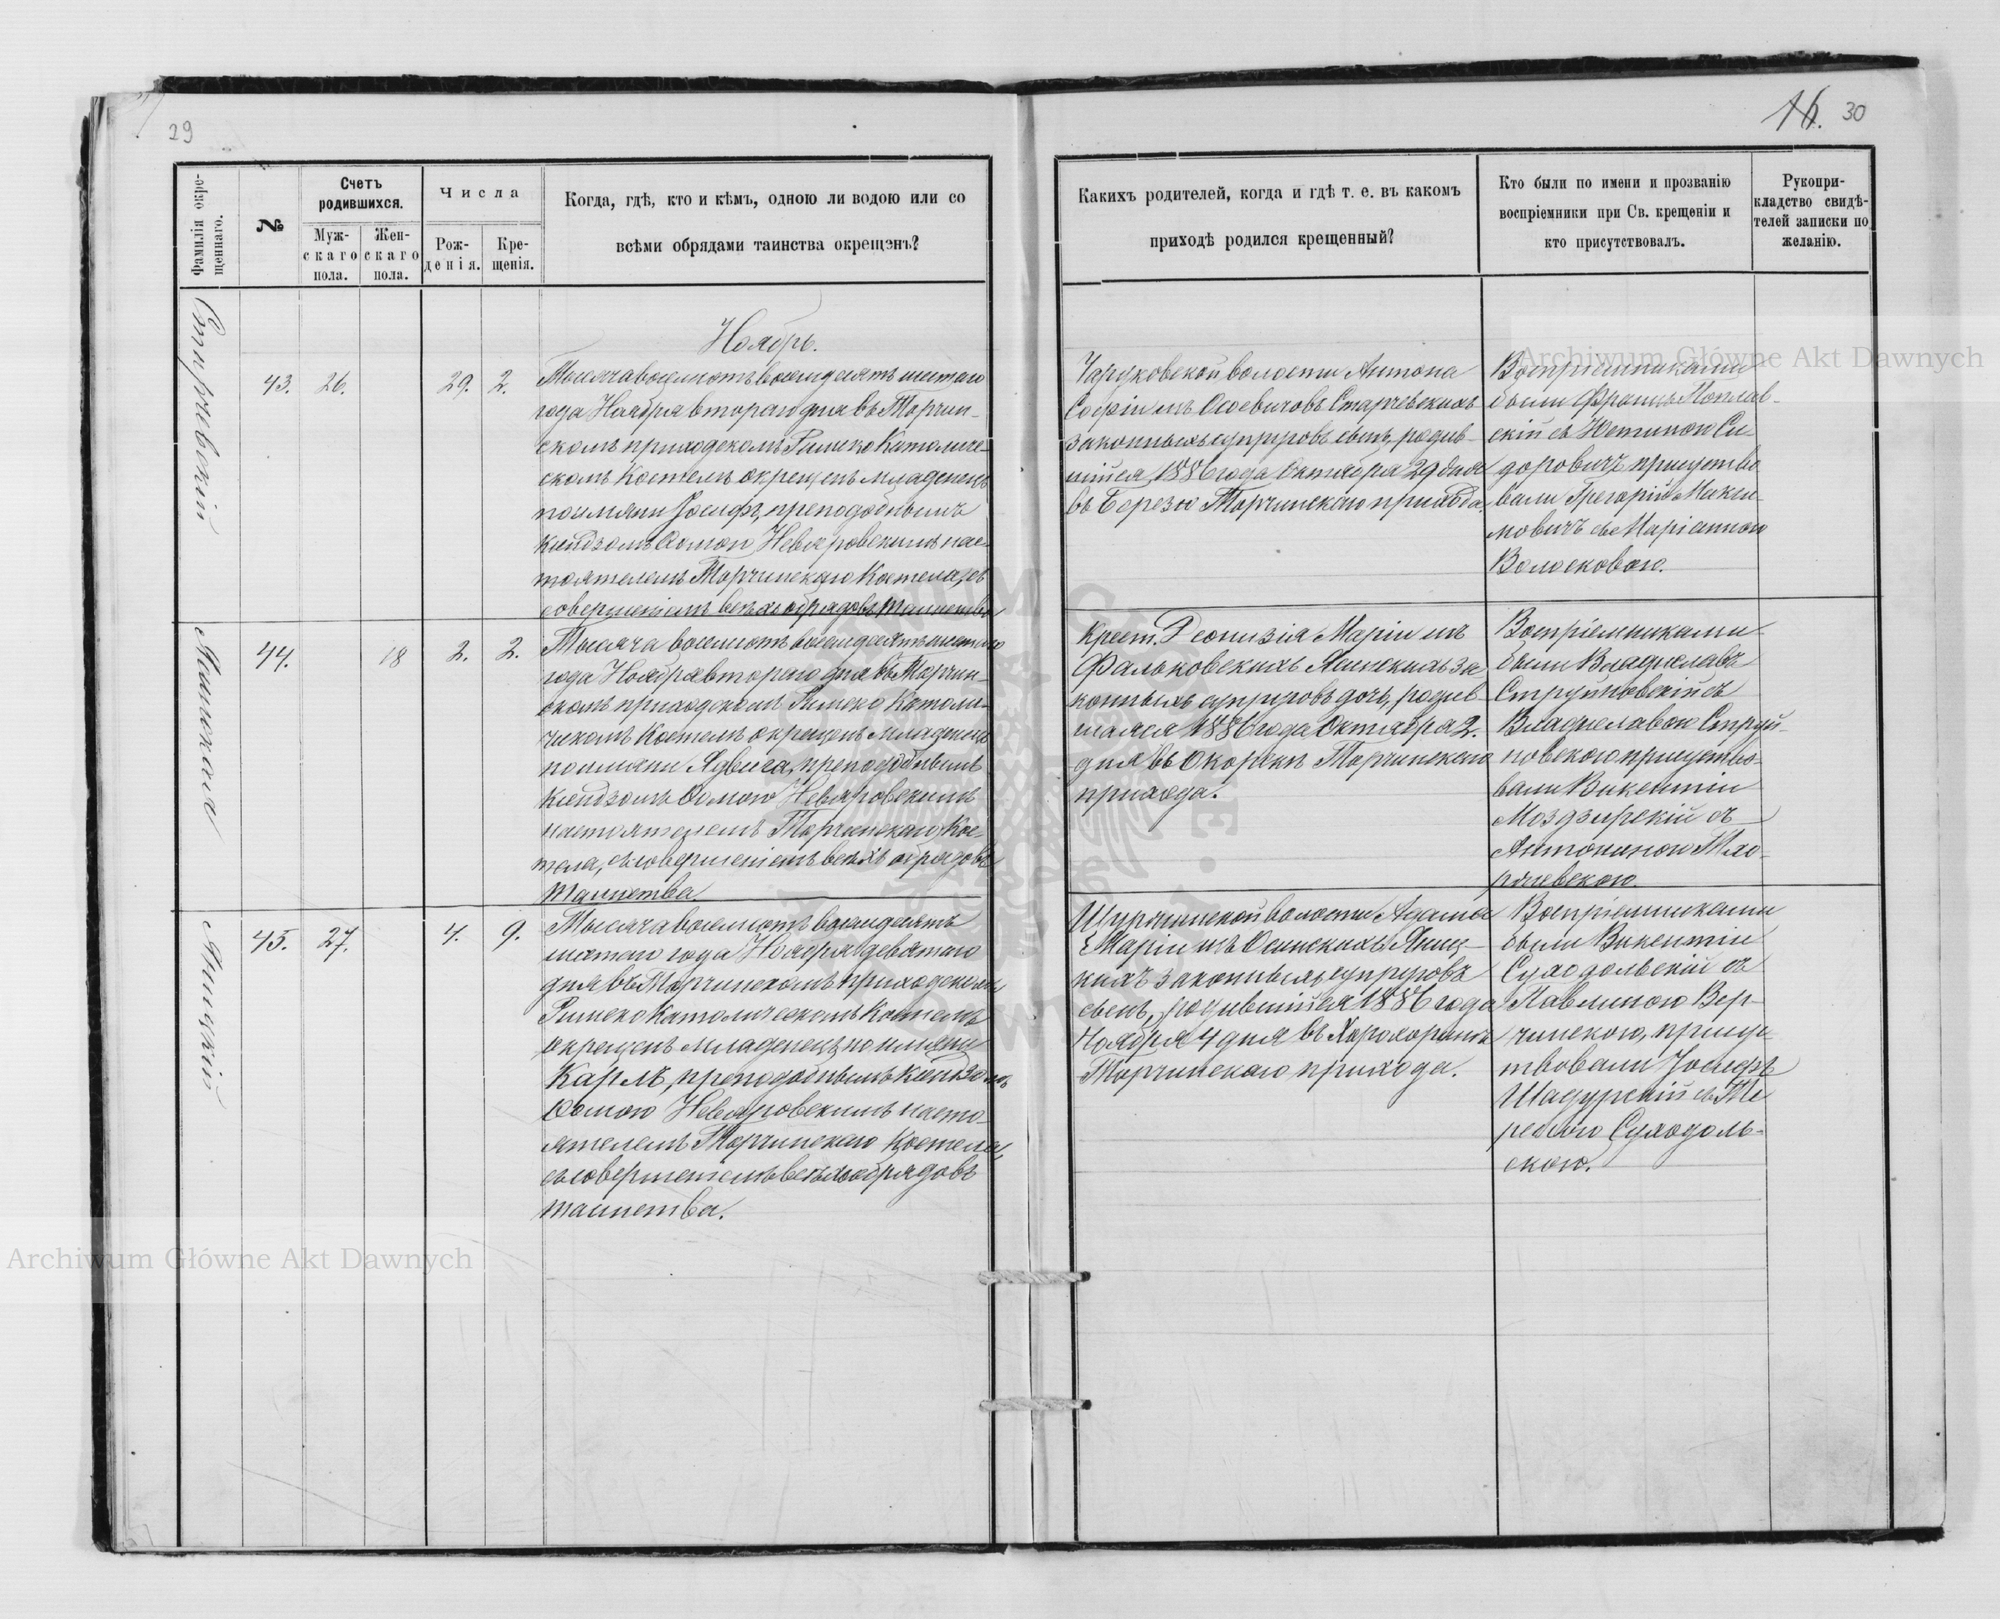 29
16. 30
Фамилія окре-
щеннаго.
№
Счетъ
родившихся.
Муж-
скаго
пола.
Жен-
скаго
пола.
Числа
Рож-
денія.
Кре-
щенія.
Когда, гдѣ, кто и кѣмъ, одною ли водою или со
всѣми обрядами таинства окрещенъ?
Каких​ъ родителей, когда и гдѣ т. е. въ какомъ
приходѣ родился крещенный?
Кто были по имени и прозванію
воспріемники при Св. крещеніи и
кто присутствовалъ.
Рукопри-
кладство свидѣ-
телей записки по
желанію.
Старчевскій
43. 26. 29. 2.
Ноябрь.
Тысяча восемьсотъ восемдесятъ шестаго
года Ноября втораго дня въ Торчин-
скомъ приходскомъ Римско Католиче-
скомъ Костелѣ окрещенъ младенецъ
по имяни Іосифъ, преподобнымъ
Ксіондзомъ Ѳомою Невяровскимъ нас-
тоятелемъ Торчинскаго Костела, съ
совершеніемъ всѣхъ обрядовъ таинства
Чаруковской волости Антона
Софіи изъ Осовичовъ Старчевскихъ
законныхъ супруговъ сынъ, родив-
шійся 1886 года Октября 29 дня
въ Березо Торчинскаго прихода.
Воспріемниками
были Францъ Поплав-
скій съ Юстиною Си
доровичъ присутство
вали Грегорій Макси
мовичъ съ Маріанною
Волосковою.
Яминская
44. 18 2. 2.
Тысяча восемсотъ восемдесятъ шестаго
года Ноября втораго дня въ Торчин-
скомъ приходскомъ Римско Католи-
ческомъ Костелѣ окрещенъ младенецъ
по имяни Ядвига, преподобнымъ
Ксіондзомъ Ѳомою Невяровскимъ
настоятелемъ Торчинскаго Кос-
тела, съ совершеніемъ всѣхъ обрядовъ
таинства.
Крест. Деонизія Маріи изъ
Фальковскихъ Яминскихъ за
конныхъ супруговъ дочь, родив
шаяся 1886 года Октября 2.
дня въ Окорскѣ Торчинскаго
прихода.
Воспріемниками
были Владиславъ
Струйновскій съ
Владиславою Струй-
новскою присутство-
вали Викентій
Моздзирскій съ
Антониною
45. 27. 4. 9.
Тысяча восемсотъ восемдесятъ
шестаго года Ноября девятаго
дня въ Торчинскомъ приходскомъ
Римско Католическомъ Костелѣ
окрещенъ младенецъ по имяни
Карлъ, преподобнымъ Ксіондзомъ
Ѳомою Невяровскимъ насто-
ятелемъ Торчинскаго Костела,
съ совершеніемъ всѣхъ обрядовъ
таинства.
Щуринской волости Адама
Маріи изъ Осинскихъ
законныхъ супруговъ
сынъ, родившійся 1886 года
Ноября 4 дня въ Хорохоринѣ
Торчинскаго прихода.
Воспріемниками
были Викентій
Суходольскій съ
Павлиною Вер-
чинскою, присут
ствовали Іосифъ
Шадурскій съ Те
ресою Суходоль-
скою.
Archiwum Główne Akt Dawnych
Archiwum Główne Akt Dawnych